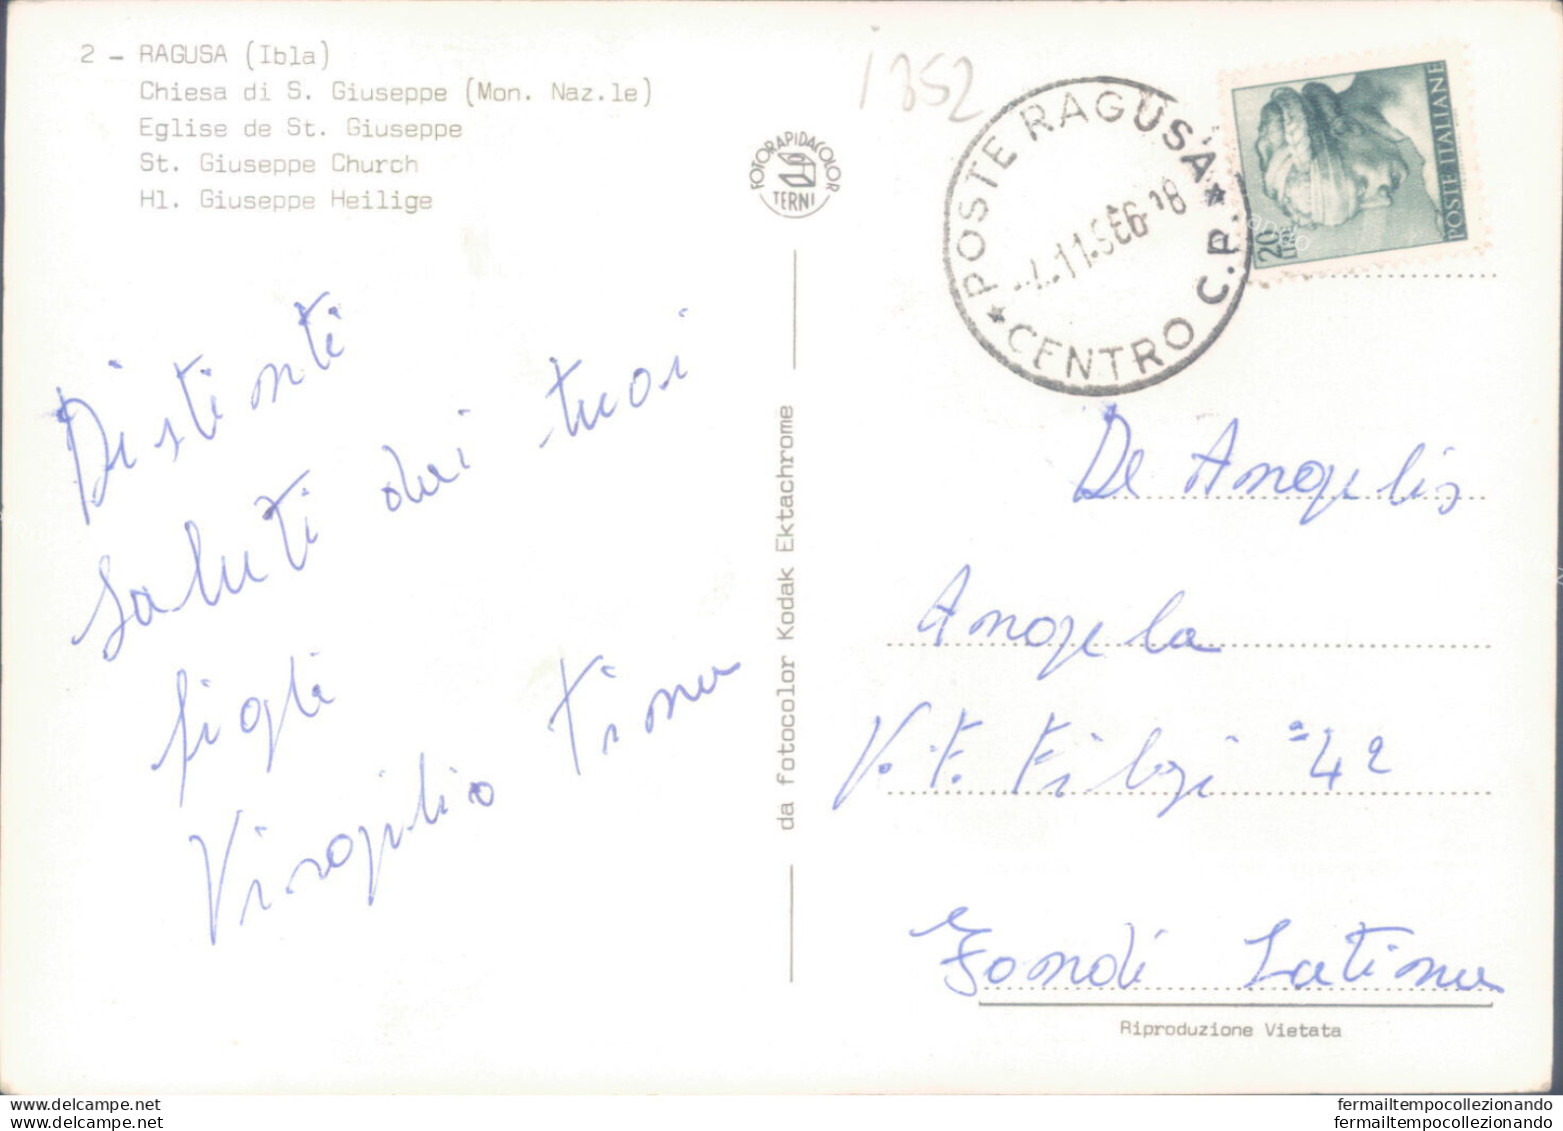 2 - RAGUSA (Ibla)
Chiesa di S. Giuseppe (Mon. Naz.le)
Eglise de St. Giuseppe
St. Giuseppe Church
Hl. Giuseppe Heilige
1352
FOTORAPIDACOLOR
TERNI
POSTE RAGUSA
CENTRO C.P.
20
LIRE
POSTE ITALIANE
Distinti
saluti dai tuoi
figli
Virgilio Tina
da fotocolor Kodak Ektachrome
De Angelis
Angela
V. F. Filzi 42
Fondi Latina
Riproduzione Vietata
fermailtempocollezionando
fermailtempocollezionando
delcampe.net
delcampe.net
fermailtempocollezionando
fermailtempocollezionando